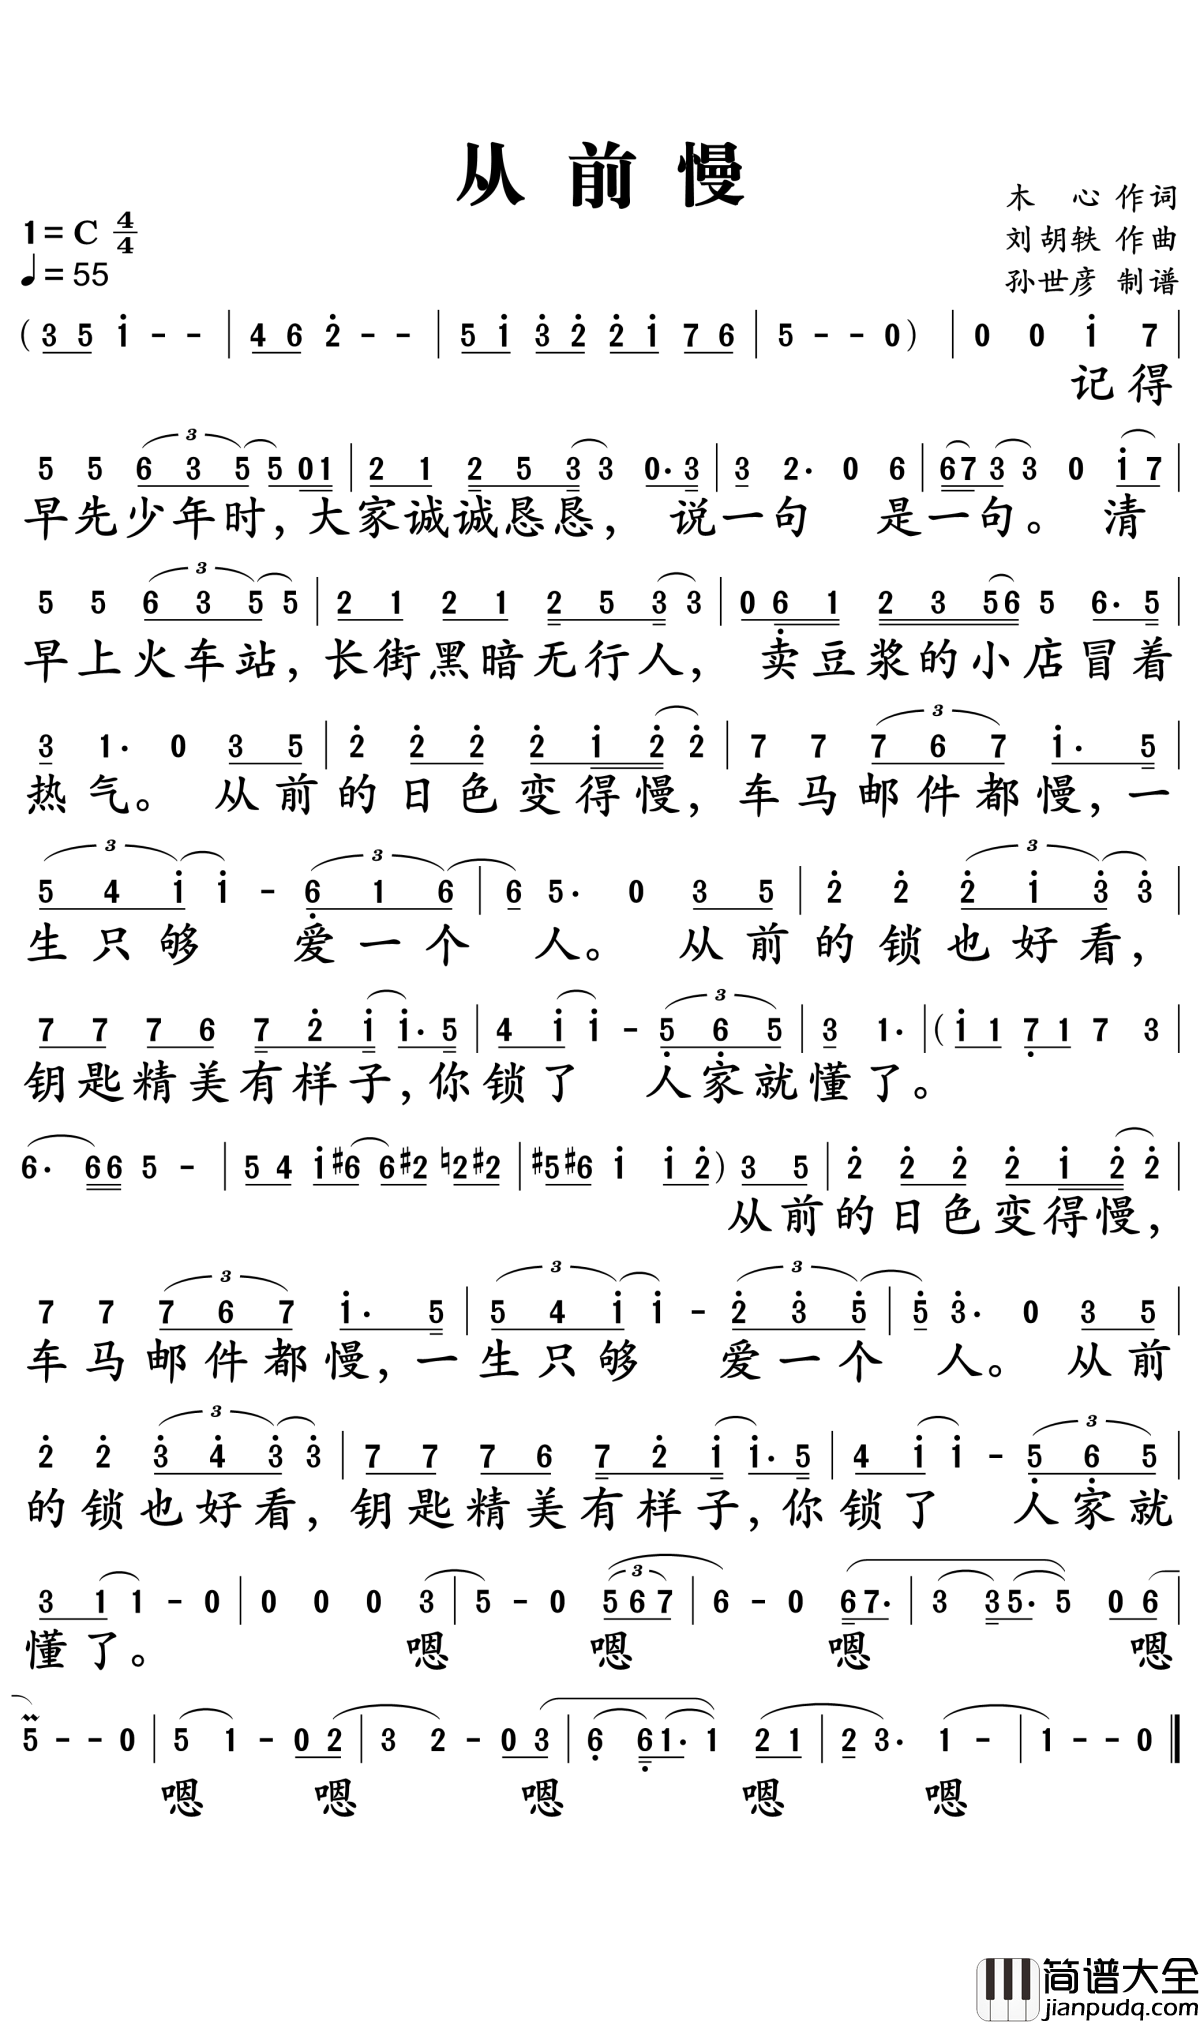 从前慢
木 心 作词
1=C 4/4
刘胡轶 作曲
♩=55
孙世彦 制谱
( 3 5 i - - | 4 6 2̇ - - | 5 i 3̇ 2̇ 2̇ i 7 6 | 5 - - 0 ) | 0 0 i 7 |
记得
5 5 6 3 5 5 0 1 | 2 1 2 5 3 3 0· 3 | 3 2· 0 6 | 6 7 3 3 0 i 7 |
早先少年时,大家诚诚恳恳, 说一句 是一句。 清
5 5 6 3 5 5 | 2 1 2 1 2 5 3 3 | 0 6̣ 1 2 3 5 6 5 6· 5 |
早上火车站,长街黑暗无行人, 卖豆浆的小店冒着
3 1· 0 3 5 | 2̇ 2̇ 2̇ 2̇ i 2̇ 2̇ | 7 7 7 6 7 i· 5 |
热气。 从前的日色变得慢,车马邮件都慢,一
5 4 i i - 6̣ 1 6 | 6 5· 0 3 5 | 2̇ 2̇ 2̇ i 3̇ 3̇ |
生只够 爱一个 人。 从前的锁也好看,
7 7 7 6 7 2̇ i i· 5 | 4 i i - 5̣ 6̣ 5 | 3 1· | ( i 1 7̣ 1 7 3 |
钥匙精美有样子,你锁了 人家就懂了。
6· 6 6 5 - | 5 4 i #6 6 #2 ♮2 #2 | #5 #6 i i 2̇ ) 3 5 | 2̇ 2̇ 2̇ 2̇ i 2̇ 2̇ |
从前的日色变得慢,
7 7 7 6 7 i· 5 | 5 4 i i - 2̇ 3̇ 5̇ | 5̇ 3̇· 0 3 5 |
车马邮件都慢,一生只够 爱一个 人。 从前
2̇ 2̇ 3̇ 4̇ 3̇ 3̇ | 7 7 7 6 7 2̇ i i· 5 | 4 i i - 5̣ 6̣ 5 |
的锁也好看,钥匙精美有样子,你锁了 人家就
3 1 1 - 0 | 0 0 0 3 | 5 - 0 5 6 7 | 6 - 0 6 7· | 3 3 5· 5 0 6 |
懂了。 嗯 嗯 嗯 嗯
5 - - 0 | 5 1 - 0 2 | 3 2 - 0 3 | 6̣ 6̣ 1· 1 2 1 | 2 3· 1 - | 1 - - 0 ‖
嗯 嗯 嗯 嗯 嗯
简谱大全
jianpudq.com